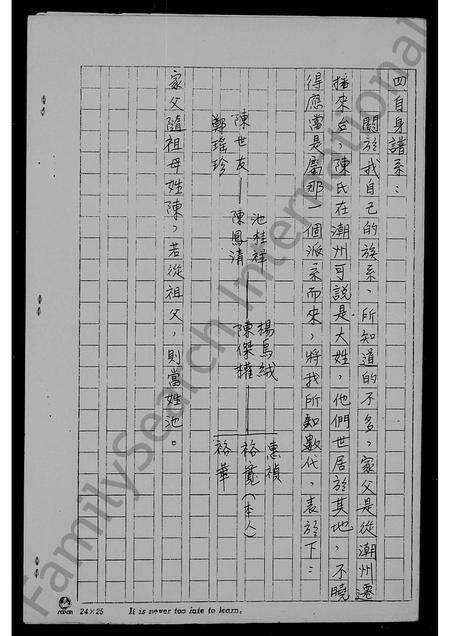 四自身譜系：
關於我自己的族系，所知道的不多，家父是從潮州遷
播來台，陳氏在潮州可說是大姓，他們世居於其地，不曉
得應當是屬那一個派系而來，將我所知數代，表於下：
池桂祥
楊烏絨
惠禎
陳世友——陳鳳清——陳傑權
裕寬（本人）
鄭瑤珍
裕華
家父隨祖母姓陳，若從祖父，則當姓池。
24×25
It is never too late to learn.
FamilySearch International